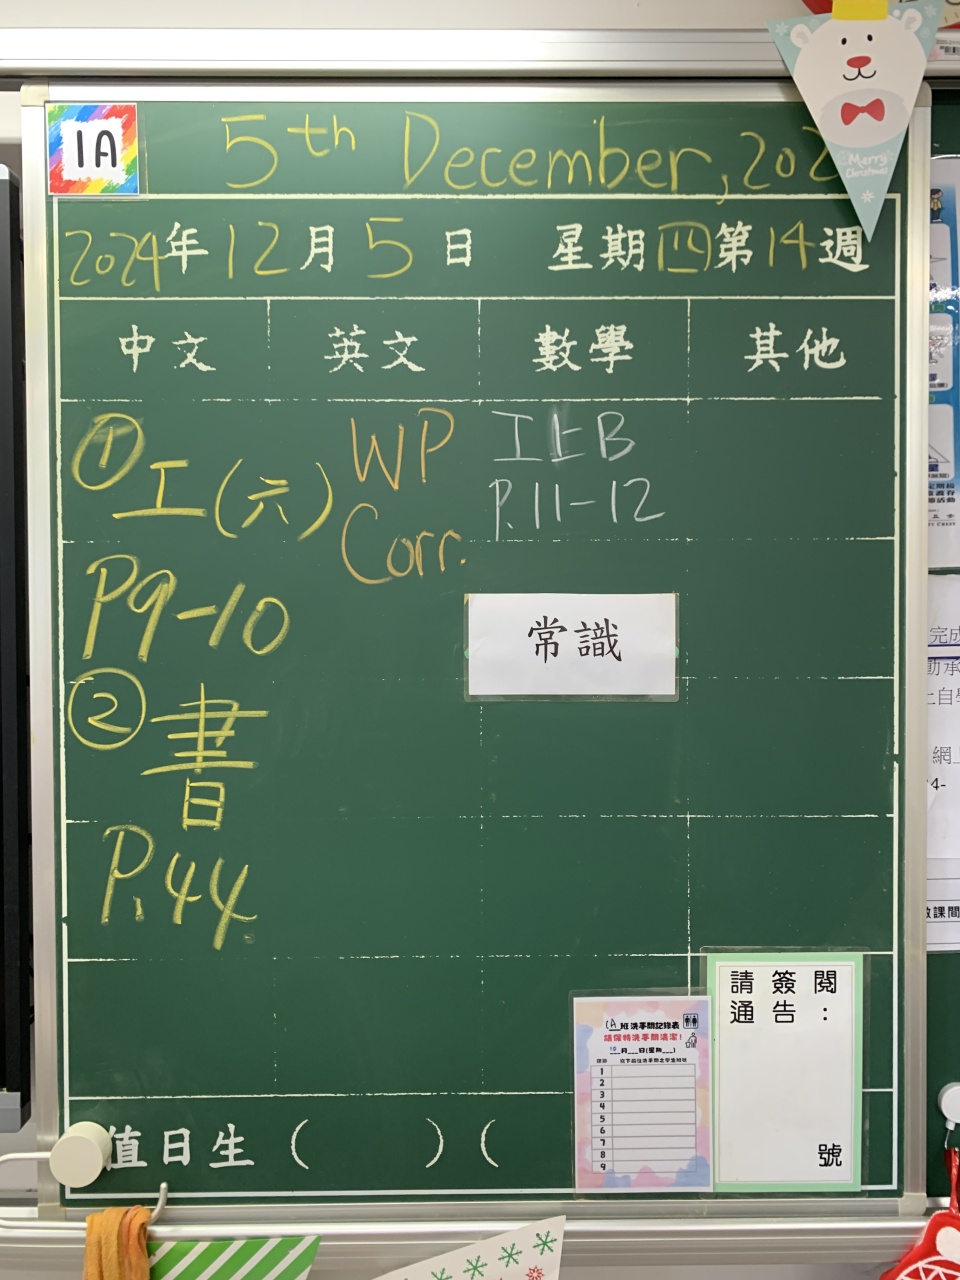 1A
5th December, 202
2024年12月5日 星期四第14週
中文 英文 數學 其他
① 工(六)
P9-10
② 書
P.44
WP
Corr.
工上B
P.11-12
常識
請簽閱
通告：
號
1A班洗手間記錄表
請保持洗手間清潔！
10月 日(星期 )
1
2
3
4
5
6
7
8
9
值日生 ( ) (
Merry
Christmas
完成
動承
上自學
網上
4-
課間